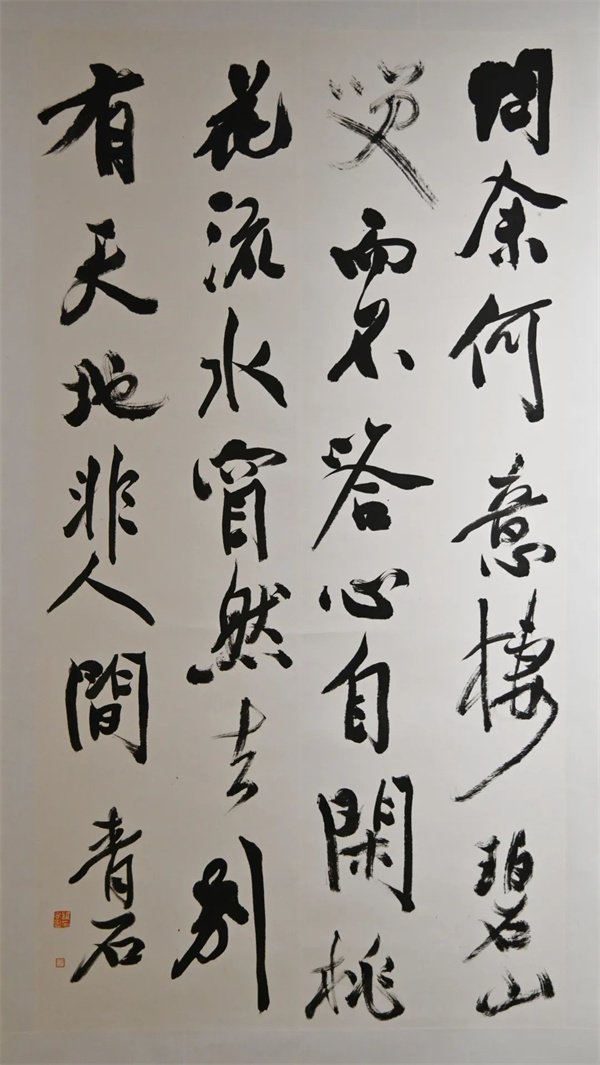 問余何意棲碧山
笑而不答心自閑桃
花流水窅然去別
有天地非人間
青石